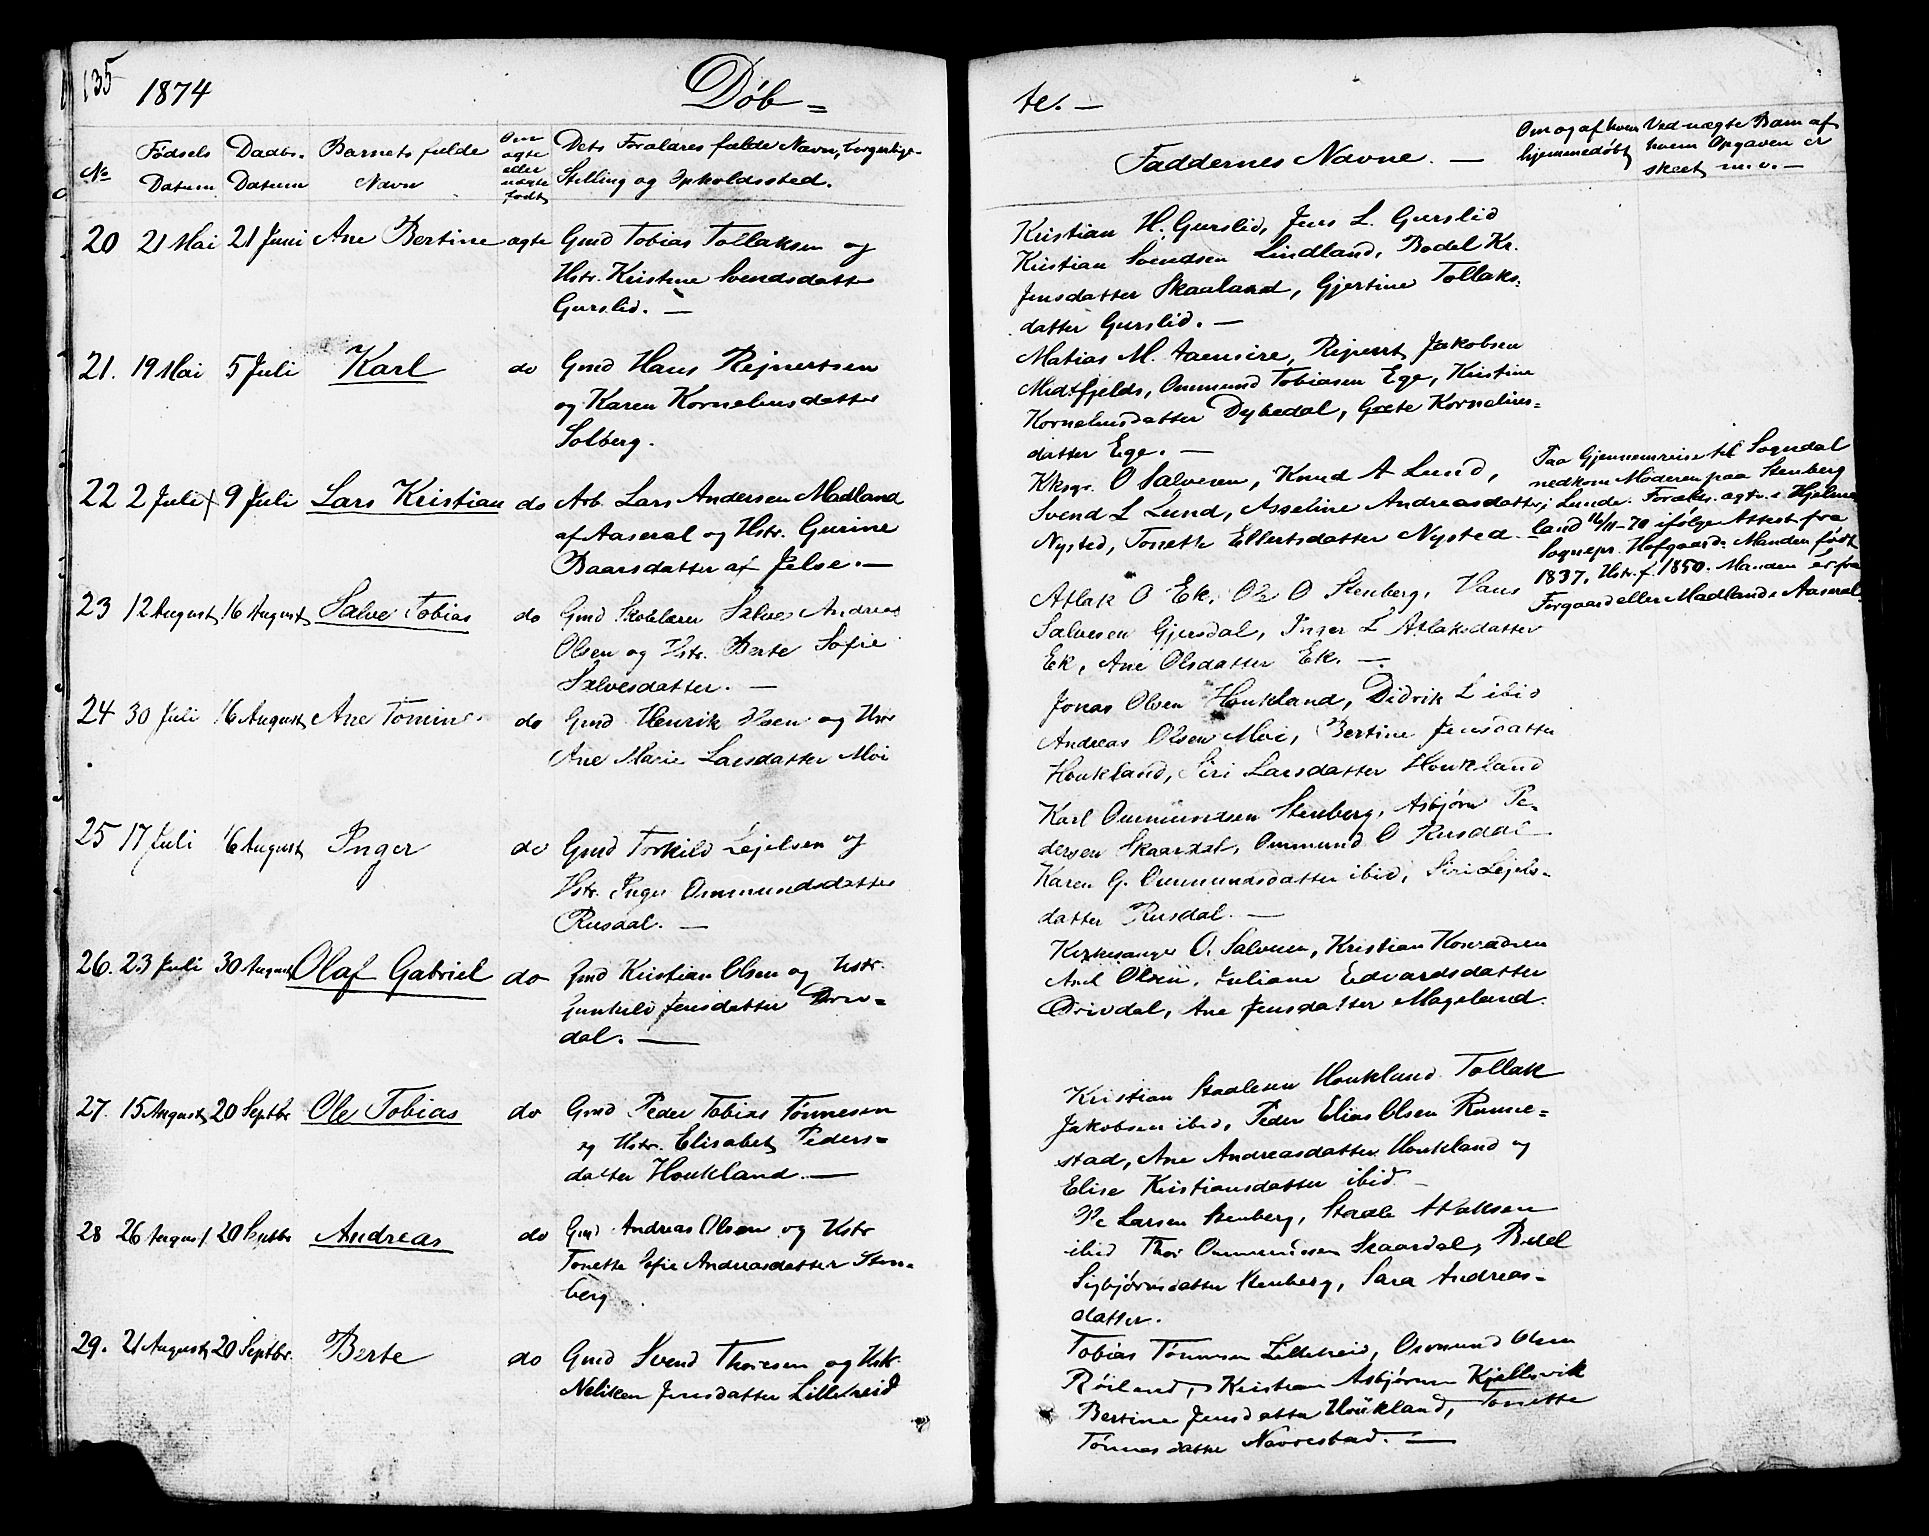 135
1874
Døb=
te. —
No
Fødsels
Datum
Daabs.
Datum
Barnets fulde
Navn
Om
ægte
eller
uægte
født
Dets Forældres fulde Navn, borgerlige
Stilling og Opholdssted.
Faddernes Navne. —
Om og af hvem
hjemmedøbt
Ved uægte Barn af
hvem Opgaven er
skeet m.v. —
20 21 Mai 21 Juni Ane Bertine ægte Gmd Tobias Tollaksen og
Hstr. Kristine Svendsdatter
Gurslid. —
Kristian H. Gurslid, Jens L. Gurslid
Kristian Svendsen Lindland, Bodel Kr.
Jensdatter Skaaland, Gjertine Tollaks=
datter Gurslid. —
21. 19 Mai 5 Juli Karl do Gmd Hans Rejnertsen
og Karen Korneliusdatter
Solberg.
Matias M. Aaensire, Rejnert Jakobsen
Midtfjeld, Ommund Tobiasen Ege, Kristine
Korneliusdatter Dybedal, Grete Kornelius=
datter Ege. —
22 2 Juli 9 Juli Lars Kristian do Arb. Lars Andersen Madland
af Aaseral og Hstr. Gurine
Baarsdatter af Jelse. —
Kksgr. O Salvesen, Knud A Lund,
Svend L Lund, Asseline Andreasdatter
Nysted, Tonette Ellertsdatter Nysted.
Paa Gjennemreise til Sogndal
nedkom Moderen paa Stenberg
i Lunde. Foræld. ægtev. i Hjelme
land 16/11-70 ifølge Attest fra
Sognepr. Hofgaard. Manden født
1837, Hstr. f. 1850. Manden er fra
Forgaard eller Madland i Aaseral.
23 12 August 16 August Salve Tobias do Gmd Skolelærer Salve Andreas
Olsen og Hstr. Berte Sofie
Salvesdatter. —
Atlak O Ek, Ole O Stenberg, Hans
Salvesen Gjersdal, Inger L Atlaksdatter
Ek, Ane Olsdatter Ek. —
24 30 Juli 16 August Ane Tomine do Gmd Henrik Olsen og Hstr
Ane Marie Larsdatter Moi
Jonas Olsen Houkland, Didrik L ibid
Andreas Olsen Moi, Bertine Jensdatter
Houkland, Siri Larsdatter Houkland
25 17 Juli 16 August Inger do Gmd Torkild Lejelsen og
Hstr. Inger Ommundsdatter
Rusdal. —
Karl Ommundsen Stenberg, Asbjørn Pe=
dersen Skaardal, Ommund O Rusdal
Karen G. Ommundsdatter ibid, Siri Lejels=
datter Rusdal. —
26. 23 Juli 30 August Olaf Gabriel do Gmd Kristian Olsen og Hstr.
Gunhild Jensdatter Driv=
dal. —
Kirkesanger O. Salvesen, Kristian Konradsen
Axel Olsen, Juliane Edvardsdatter
Drivdal, Ane Jensdatter Mageland.
27. 15 August 20 Septbr Ole Tobias do Gmd Peder Tobias Tønnesen
og Hstr. Elisabet Peders=
datter Houkland. —
Kristian Staalesen Houkland Tollak
Jakobsen ibid, Peder Elias Olsen Ramme=
stad, Ane Andreasdatter Houkland og
Elise Kristiansdatter ibid —
28 26 August 20 Septbr Andreas do Gmd Andreas Olsen og Hstr
Tonette Sofie Andreasdatter Sten=
berg
Ole Larsen Stenberg, Staale Atlaksen
ibid Thor Ommundsen Skaardal, Bodel
Sigbjørnsdatter Stenberg, Sara Andreas=
datter.
29. 21 August 20 Septbr. Berte do Gmd Svend Thoresen og Hstr.
Neliken Jensdatter Lilleheid
Tobias Tønnesen Lilleheid, Osmund Olsen
Røiland, Kristian Asbjørnsen Kjellesvik
Bertine Jensdatter Houkland, Tonette
Tønnesdatter Navrestad. —